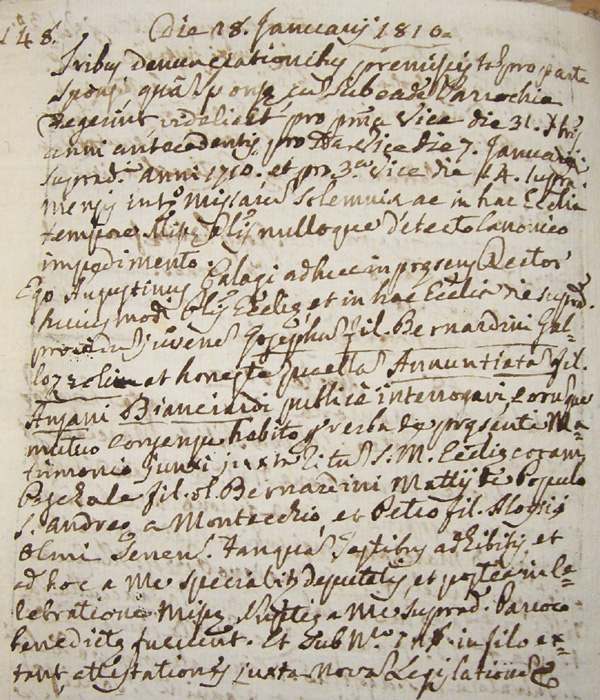 148. Die 28. Januarij 1810.
Tribus denunciationibus premissis tã pro parte
Sponsi, quã Sponsę cũ sub eadẽ Parochia
degerint videlicet pro prĩa Vice die 31. Xbris
anni antecedentis, pro 2da Vice die 7. Januarij
suprad. anni 1710. et pro 3a Vice die 14. supra
mensis intr. Missarũ Solemnia ac in hac Ecclia
tempore Missę Plis nulloque detecto Canonico
impedimento.
Ego Augustinus Calagi adhuc in pręsens Rector
huiusmodi Plis Eccłię, et in hac Ecclia die suprad.
providũ juvenẽ Josephũ fil. Bernardini Gal-
lozzolini et honestã puellã Annuntiatã fil.
Ansani Bianciardi publicè interrogavi, eorumque
mutuo consensu habito p verba de pręsenti Ma-
trimonio junxi juxta Ritũ S. M. Eccłię coram
Paschale fil. ol. Bernardini Mattij de Populo
S. Andreę a Montecchio, et Petro fil. Aloysij
Olmi Senens. tanquã Testibus adhibitis, et
ad hoc a Me specialiter deputatis et postea in Ce-
lebratione Missę Nuptię a Me suprad. Paroco
benedicta fuerunt. Et sub No. in filo ex-
tant attestationes juxta novã Legislationẽ